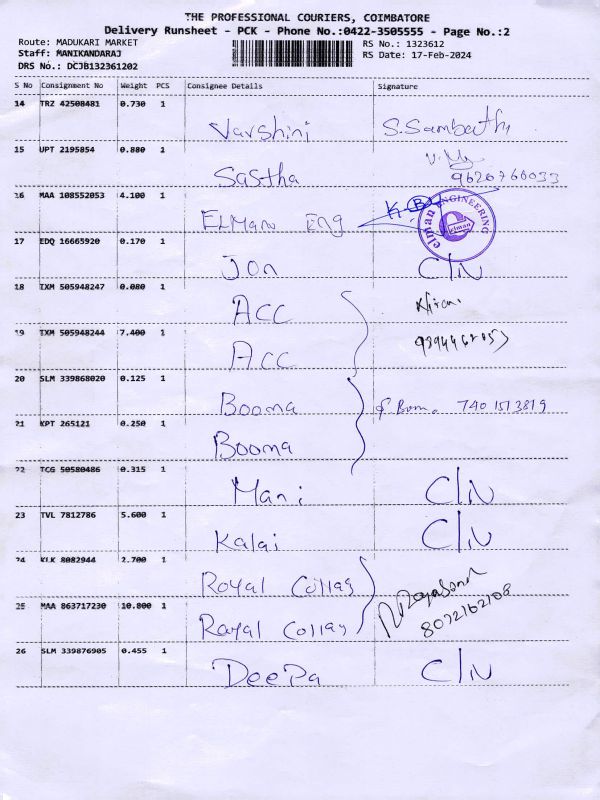 THE PROFESSIONAL COURIERS, COIMBATORE
Delivery Runsheet - PCK - Phone No.:0422-3505555 - Page No.:2
Route: MADUKARI MARKET RS No.: 1323612
Staff: MANIKANDARAJ RS Date: 17-Feb-2024
DRS No.: DCJB132361202
S No Consignment No Weight PCS Consignee Details Signature
14 TRZ 42508481 0.730 1
Varshini S.Sambath
15 UPT 2195854 0.880 1
Sastha 9626760033
16 MAA 108552053 4.100 1
ELMAN Eng K.B
elman ENGINEERING
elman
17 EDQ 16665920 0.170 1
JON C/N
18 IXM 505948247 0.080 1
ACC
19 IXM 505948244 7.400 1
ACC
20 SLM 339868020 0.125 1
Booma 740 1513819
21 KPT 265121 0.250 1
Booma
22 TCG 50580486 0.315 1
Mani C/N
23 TVL 7812786 5.600 1
Kalai C/N
24 KLK 8082944 2.700 1
Royal Collag
25 MAA 863717230 10.800 1
Royal Collag 8072162108
26 SLM 339876905 0.455 1
DeePa C/N